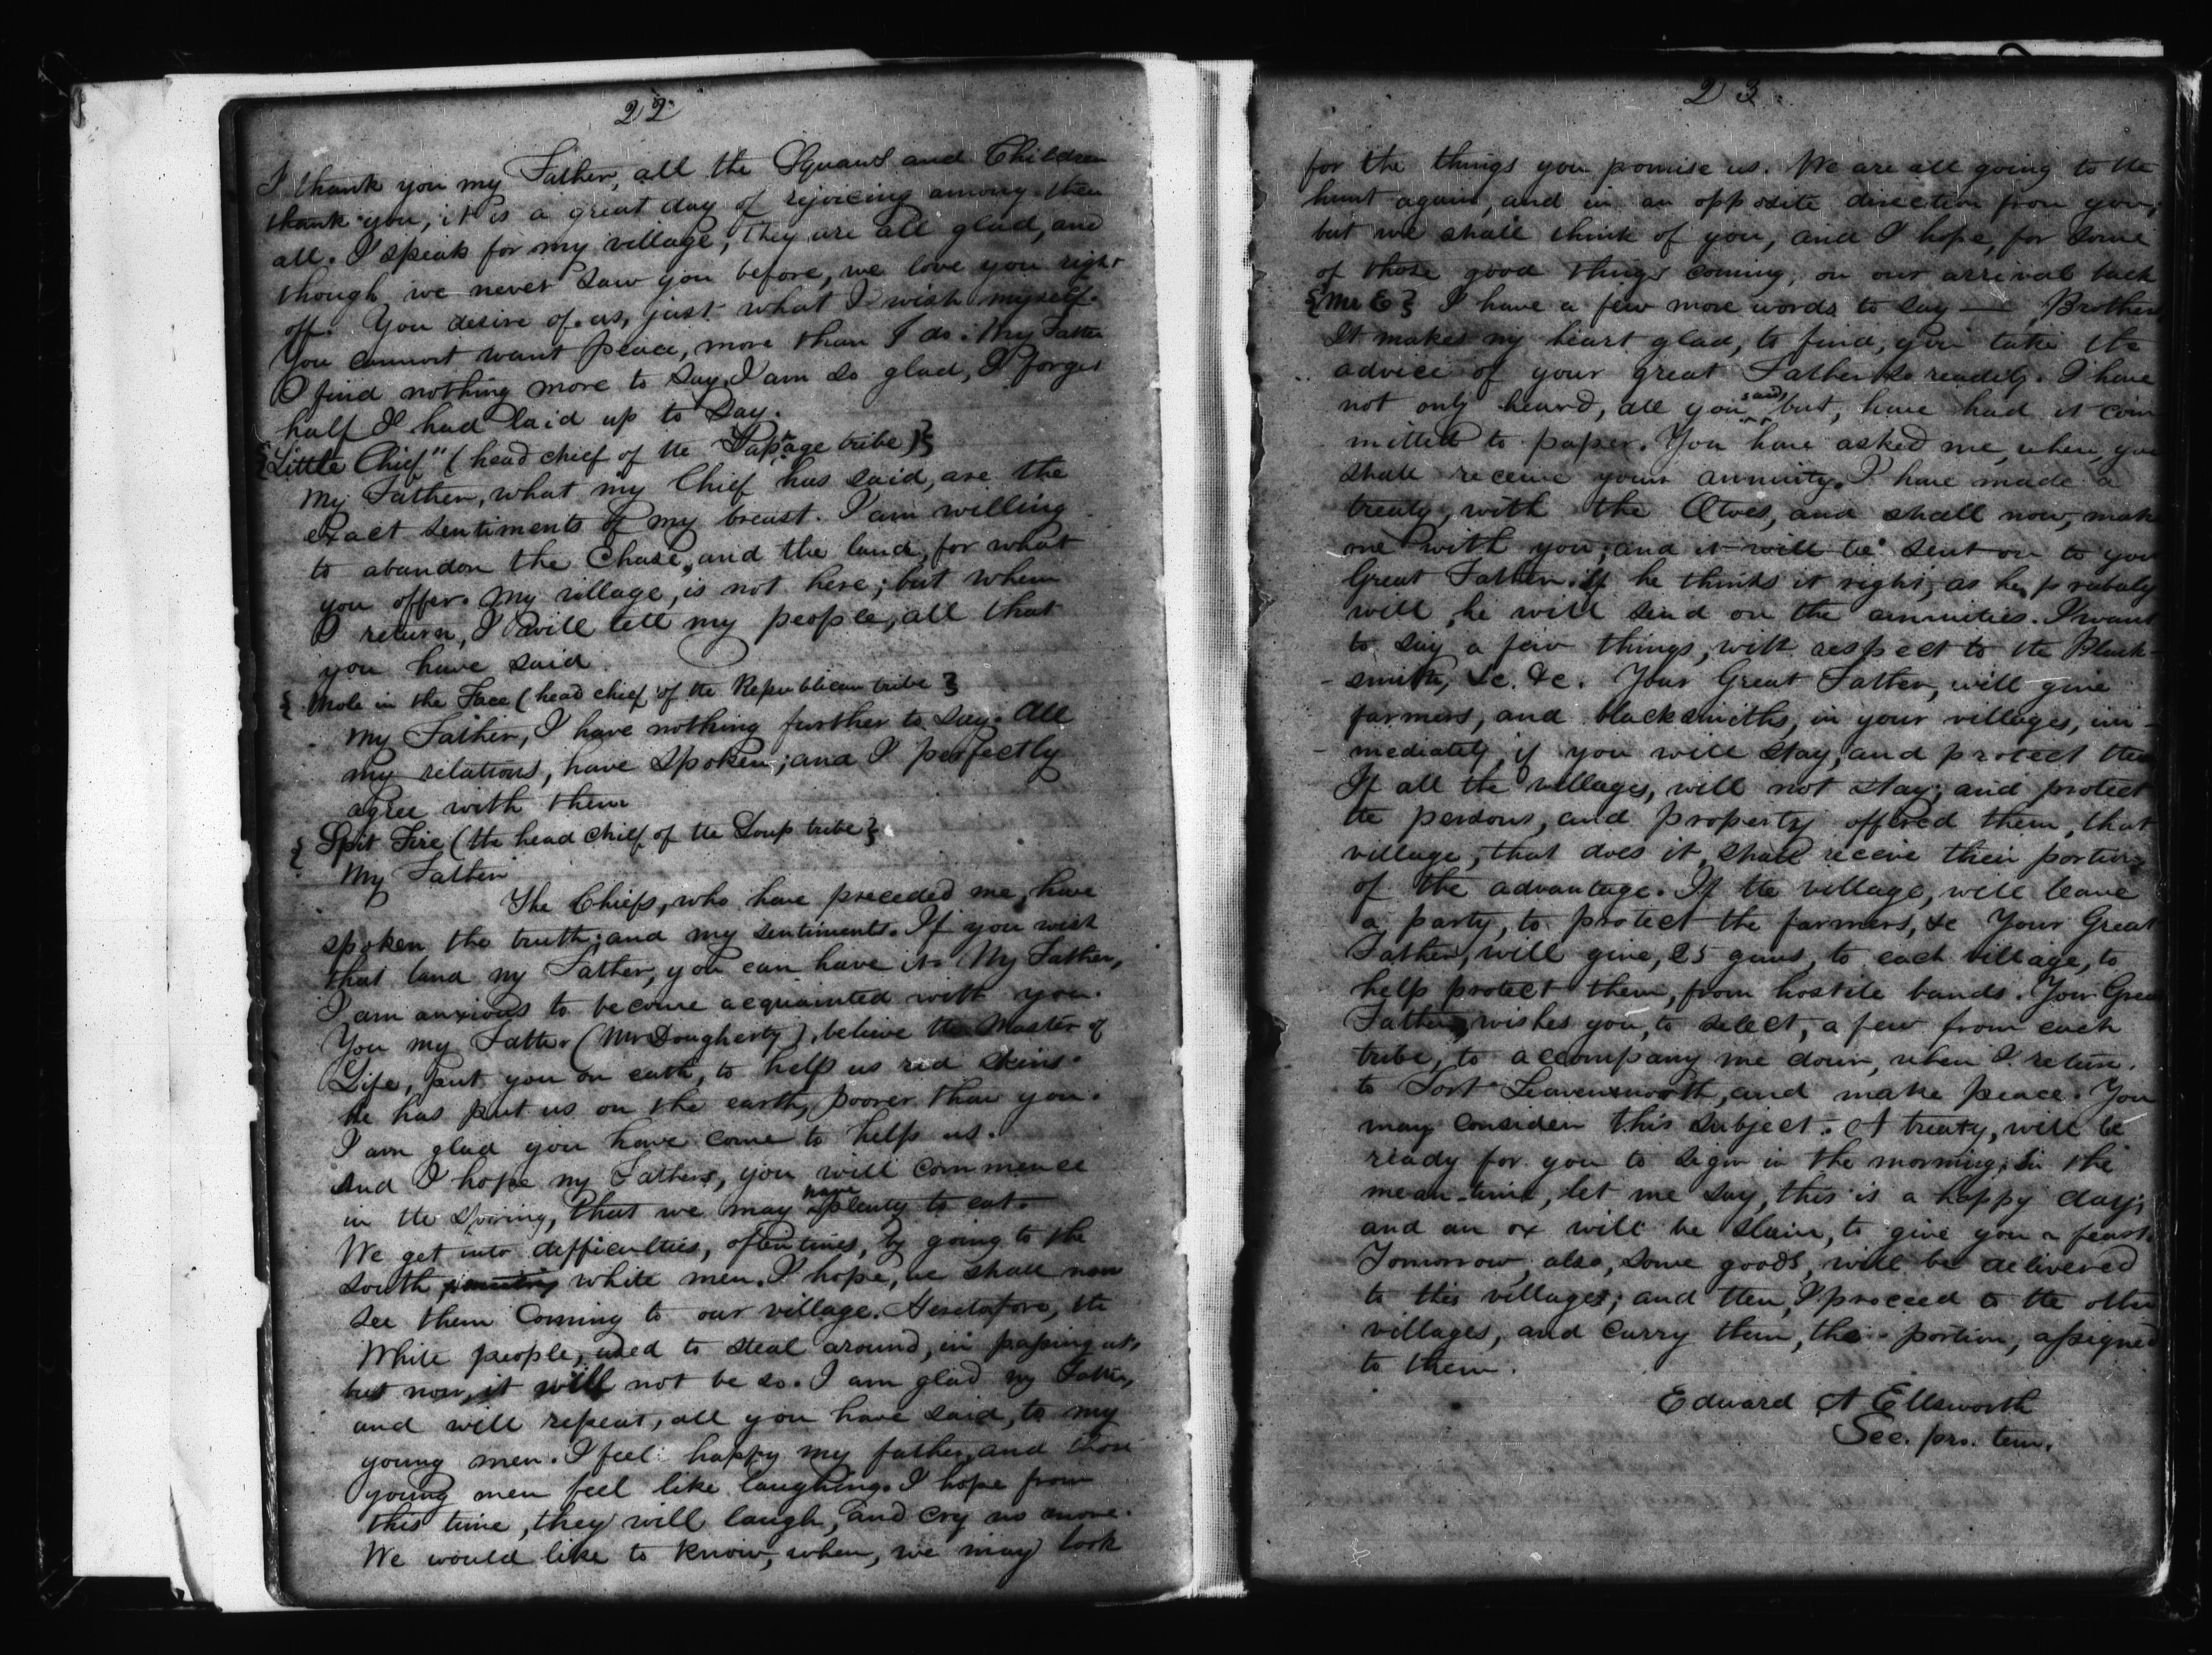 22
I thank you my Father, all the Squaws and Children
thank you, it is a great day of rejoicing among them
all. I speak for my village, they are all glad, and
though we never saw you before, we love you right
off. You desire of us, just what I wish myself.
You cannot want peace, more than I do. My Father
I find nothing more to say, I am so glad, I forget
half I had laid up to say.
{Little Chief" (head chief of the Tapage tribe)}
My Father, what my Chief has said, are the
exact sentiments of my breast. I am willing
to abandon the Chase, and the land, for what
you offer. My village, is not here; but when
I return, I will tell my people, all that
you have said
{Mole in the Face (head chief of the Republican tribe}
My Father, I have nothing further to say. All
my relations, have spoken; and I perfectly
agree with them
{Spit Fire (the head chief of the Loup tribe}
My Father
The Chiefs, who have preceded me, have
spoken the truth; and my sentiments. If you wish
that land my Father, you can have it. My Father,
I am anxious to become acquainted with you.
You my Father (Mr Dougherty), believe the Master of
Life, put you on earth, to help us red skins.
He has put us on the earth, poorer than you.
I am glad you have come to help us.
And I hope my Fathers, you will commence
in the spring, that we may have plenty to eat.
We get into difficulties, oftentimes, by going to the
south white men. I hope, we shall now
see them coming to our village. Heretofore, the
White people, used to steal around, in passing us,
but now, it will not be so. I am glad my Father,
and will repeat, all you have said, to my
young men. I feel happy my father, and those
young men feel like laughing. I hope from
this time, they will laugh, and cry no more.
We would like to know, when, we may look
23
for the things you promise us. We are all going to the
hunt again, and in an opposite direction from you;
but we shall think of you, and I hope, for some
of those good things coming, on our arrival back
{Mr E} I have a few more words to say — Brothers
It makes my heart glad, to find, you take the
advice of your great Father so readily. I have
not only heard, all you said, but, have had it com
mitted to paper. You have asked me, when, you
shall receive your annuity. I have made a
treaty, with the Otoes, and shall now, make
one with you; and it will be sent on to your
Great Father. If he thinks it right, as he probaly
will, he will send on the annuities. I want
to say a few things, with respect to the Black-
-smith, &c. &c. Your Great Father, will give
farmers, and blacksmiths, in your villages, im-
-mediately, if you will stay, and protect them
If all the villages, will not stay; and protect
the persons, and property offered them, that
village, that does it, shall receive their portion
of the advantage. If the village, will leave
a party, to protect the farmers, &c Your Great
Father, will give, 25 guns, to each village, to
help protect them, from hostile bands. Your Great
Father, wishes you, to select, a few from each
tribe, to accompany me down, when I return,
to Fort Leavenworth, and make peace. You
may consider this subject. A treaty, will be
ready for you to sign in the morning; In the
mean-time, let me say, this is a happy day;
and an ox will be slain, to give you a feast.
Tomorrow, also, some goods, will be delivered
to this village; and then, I proceed to the other
villages, and carry them, the portion, assigned
to them.
Edward A Ellsworth
Sec. pro. tem.